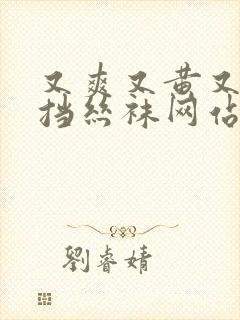 又爽又黄又
挡丝袜网站
劉睿婧